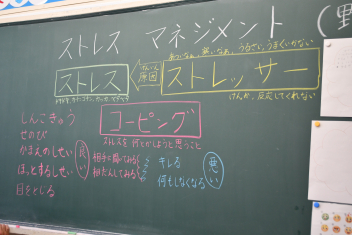 ストレス マネジメント
あついなぁ、寒いなぁ、うるさい、うまくいかない
ストレス
げんいん
原因
ストレッサー
けんか、反応してくれない
コーピング
ストレスを何とかしようと思うこと
しんこきゅう
せのび
がまんのしせい
ほっとするしせい
目をとじる
良い
相手に話してみる
相だんしてみる
キレる
何もしなくなる
悪い